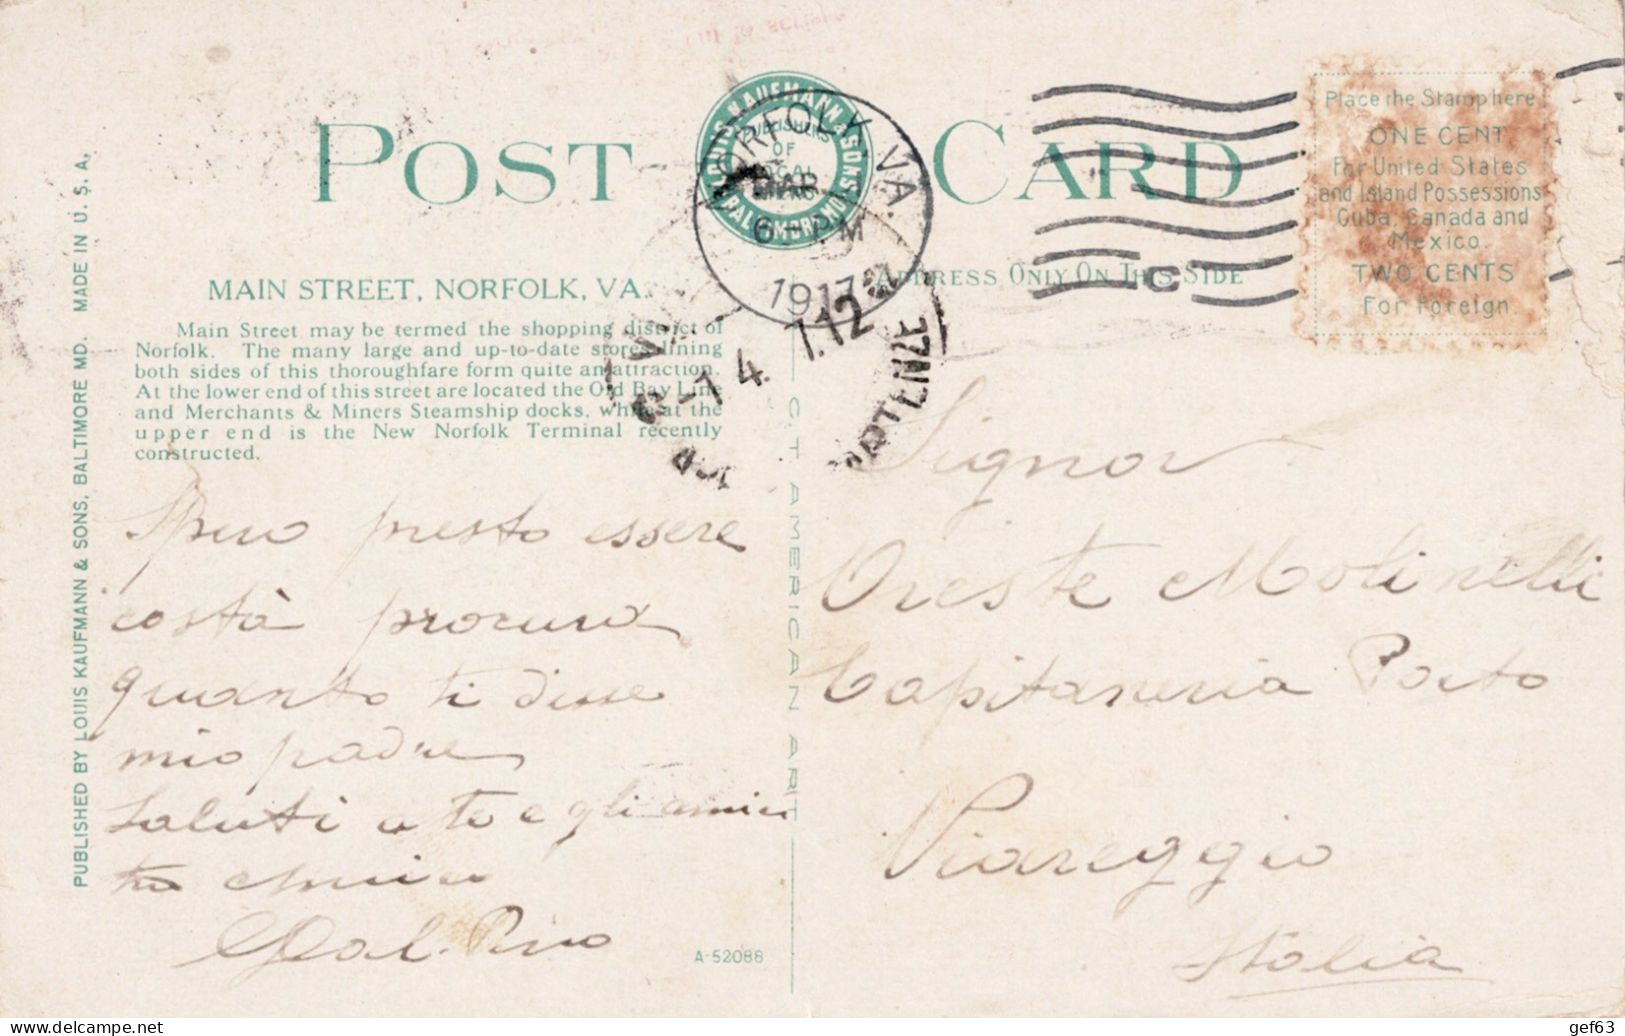 POST CARD
LOUIS KAUFMANN & SONS
PUBLISHERS
OF
LOCAL
VIEWS
BALTIMORE, MD.
NORFOLK, VA.
MAR
6- PM
1917
Place the Stamp here
ONE CENT
For United States
and Island Possessions
Cuba, Canada and
Mexico.
TWO CENTS
For Foreign.
MAIN STREET, NORFOLK, VA.
ADDRESS ONLY ON THIS SIDE
Main Street may be termed the shopping district of
Norfolk. The many large and up-to-date stores lining
both sides of this thoroughfare form quite an attraction.
At the lower end of this street are located the Old Bay Line
and Merchants & Miners Steamship docks, while at the
upper end is the New Norfolk Terminal recently
constructed.
PARTENZE
Spero presto essere
costà procura
quanto ti disse
mio padre
Saluti a te e gli amici
Signor
Oreste Molinelli
Capitaneria Porto
Viareggio
Italia
PUBLISHED BY LOUIS KAUFMANN & SONS, BALTIMORE MD. MADE IN U. S. A.
C T AMERICAN ART
A-52088
gef63